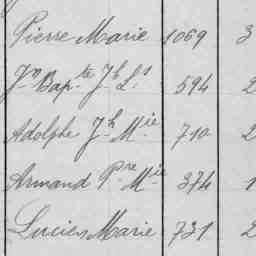 Pierre Marie 1069 3
Jn Bapte Jh Ls 594 2
Adolphe Jh Mie 710 2
Armand Pre Mie 374 1
Lucien Marie 731 2